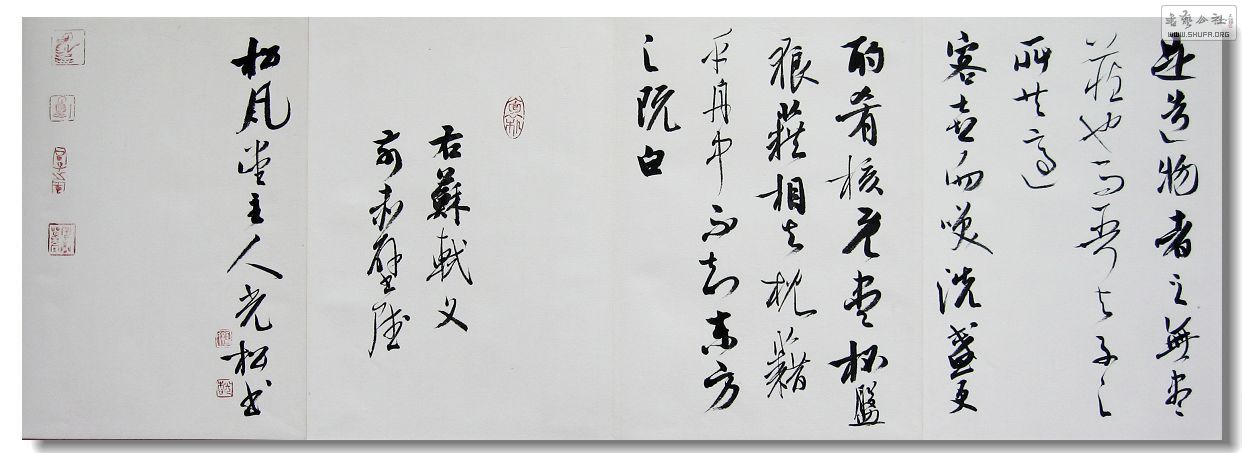 是造物者之無盡
藏也而吾与子之
所共適
客喜而咲洗盞更
酌肴核既盡杯盤
狼藉相与枕籍
乎舟中不知東方
之既白
右蘇軾文
前赤壁賦
松風堂主人光松書
书艺公社
WWW.SHUFA.ORG